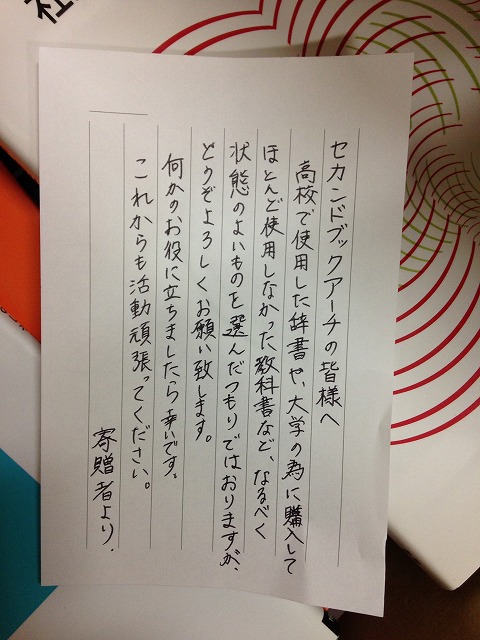 セカンドブックアーチの皆様へ
高校で使用した辞書や、大学の為に購入して
ほとんど使用しなかった教科書など、なるべく
状態のよいものを選んだつもりではおりますが、
どうぞよろしくお願い致します。
何かのお役に立ちましたら幸いです。
これからも活動頑張ってください。
寄贈者より.
社